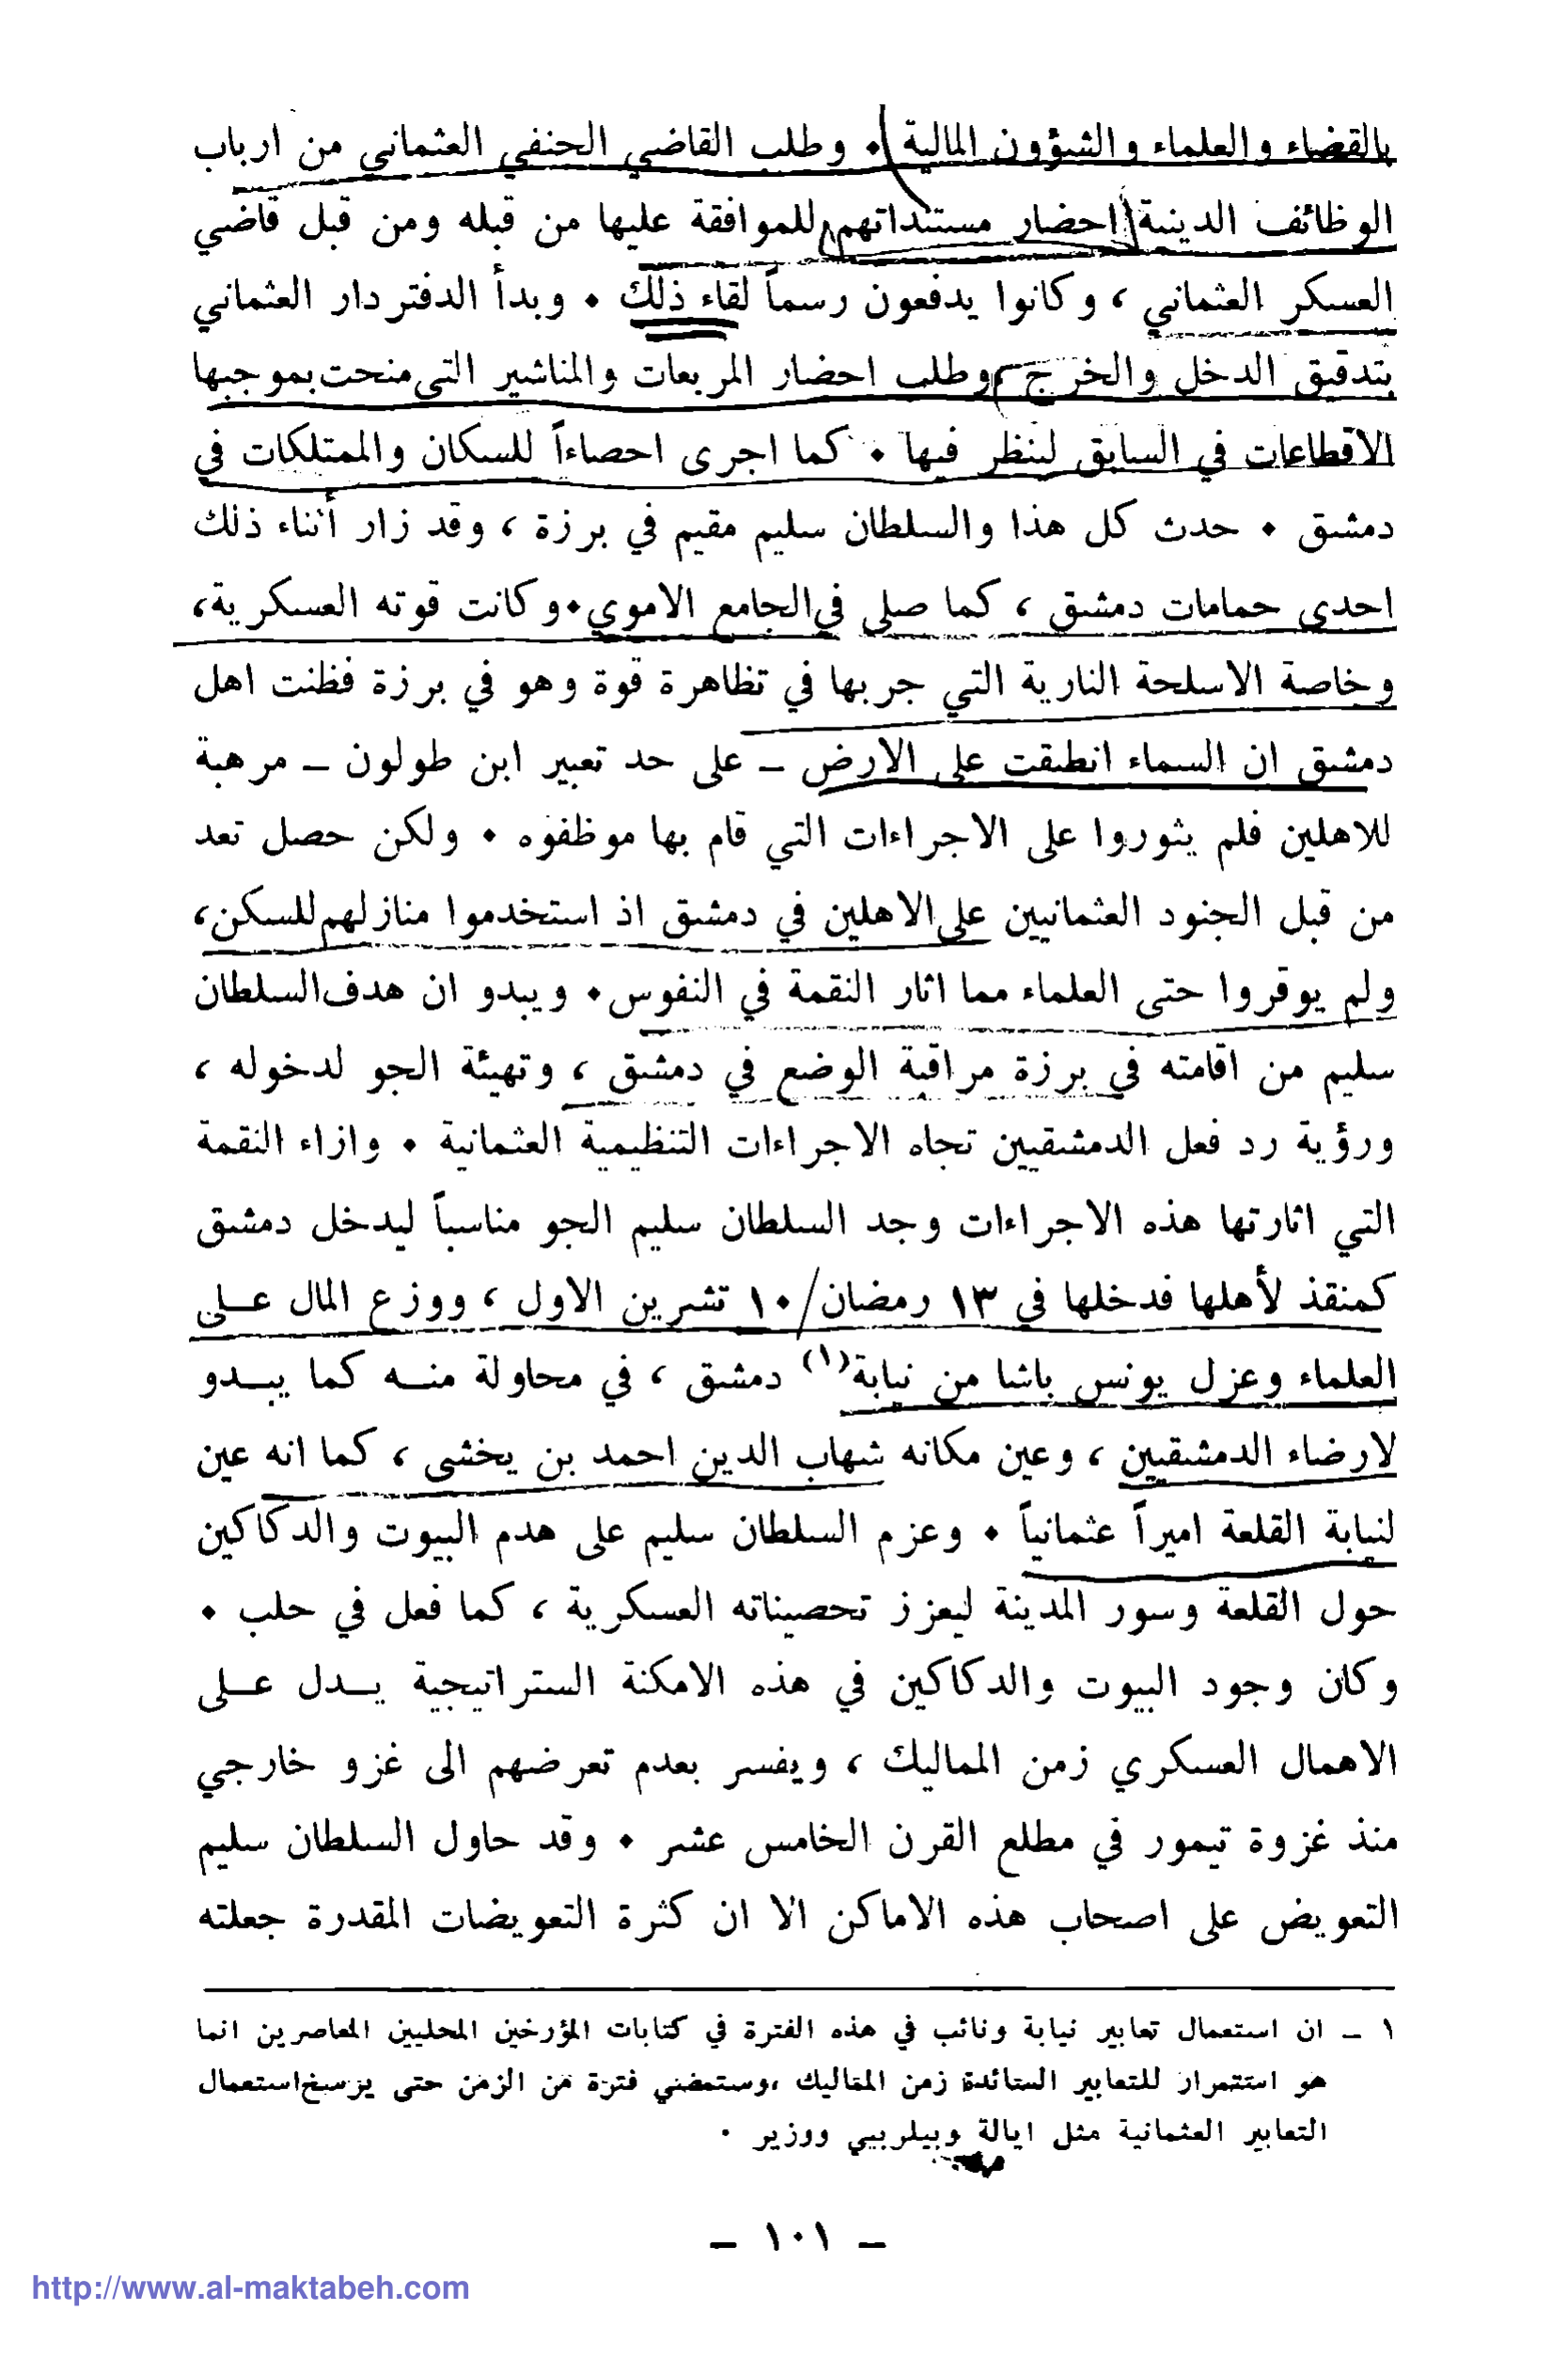 بالقضاء والعلماء والشؤون المالية ٠ وطلب القاضي الحنفي العثماني من ارباب
الوظائف الدينية احضار مستنداتهم للموافقة عليها من قبله ومن قبل قاضي
العسكر العثماني ، وكانوا يدفعون رسماً لقاء ذلك ٠ وبدأ الدفتردار العثماني
بتدقيق الدخل والخرج ، وطلب احضار المربعات والمناشير التي منحت بموجبها
الاقطاعات في السابق لينظر فيها ٠ كما اجرى احصاءاً للسكان والممتلكات في
دمشق ٠ حدث كل هذا والسلطان سليم مقيم في برزة ، وقد زار أثناء ذلك
احدى حمامات دمشق ، كما صلى في الجامع الاموي ٠ وكانت قوته العسكرية،
وخاصة الاسلحة النارية التي جربها في تظاهرة قوة وهو في برزة فظنت اهل
دمشق ان السماء انطبقت على الارض – على حد تعبير ابن طولون – مرهبة
للاهلين فلم يثوروا على الاجراءات التي قام بها موظفوه ٠ ولكن حصل تعد
من قبل الجنود العثمانيين على الاهلين في دمشق اذ استخدموا منازلهم للسكن،
ولم يوقروا حتى العلماء مما اثار النقمة في النفوس ٠ ويبدو ان هدف السلطان
سليم من اقامته في برزة مراقبة الوضع في دمشق ، وتهيئة الجو لدخوله ،
ورؤية رد فعل الدمشقيين تجاه الاجراءات التنظيمية العثمانية ٠ وازاء النقمة
التي اثارتها هذه الاجراءات وجد السلطان سليم الجو مناسباً ليدخل دمشق
كمنقذ لأهلها فدخلها في ١٣ رمضان/١٠ تشرين الاول ، ووزع المال عـلـى
العلماء وعزل يونس باشا من نيابة(١) دمشق ، في محاولة منـه كما يبـدو
لارضاء الدمشقيين ، وعين مكانه شهاب الدين احمد بن يخشى ، كما انه عين
لنيابة القلعة اميراً عثمانياً ٠ وعزم السلطان سليم على هدم البيوت والدكاكين
حول القلعة وسور المدينة ليعزز تحصيناته العسكرية ، كما فعل في حلب ٠
وكان وجود البيوت والدكاكين في هذه الامكنة الستراتيجية يـدل عـلـى
الاهمال العسكري زمن المماليك ، ويفسر بعدم تعرضهم الى غزو خارجي
منذ غزوة تيمور في مطلع القرن الخامس عشر ٠ وقد حاول السلطان سليم
التعويض على اصحاب هذه الاماكن الا ان كثرة التعويضات المقدرة جعلته
١ – ان استعمال تعابير نيابة ونائب في هذه الفترة في كتابات المؤرخين المحليين المعاصرين انما
هو استمرار للتعابير السائدة زمن المماليك ،وستمضي فترة من الزمن حتى يرسخ استعمال
التعابير العثمانية مثل ايالة وبيلربيي ووزير ٠
– ١٠١ –
http://www.al-maktabeh.com